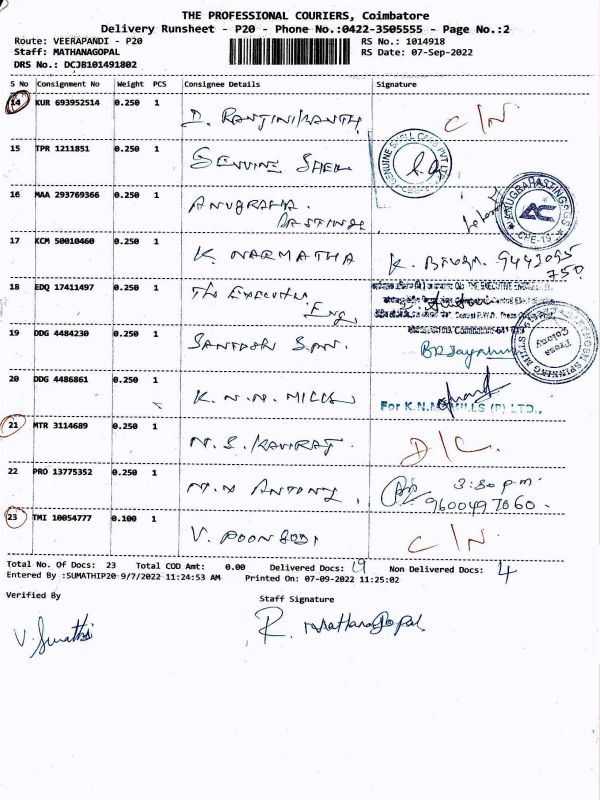 THE PROFESSIONAL COURIERS, Coimbatore
Delivery Runsheet - P20 - Phone No.:0422-3505555 - Page No.:2
Route: VEERAPANDI - P20 RS No.: 1014918
Staff: MATHANAGOPAL RS Date: 07-Sep-2022
DRS No.: DCJB101491802
S No Consignment No Weight PCS Consignee Details Signature
14 KUR 693952514 0.250 1 D. RANJINIKANTH C/N
15 TPR 1211851 0.250 1 GENUINE SHELL
16 MAA 293769366 0.250 1 ANUGRAHA CASTINGS
17 KCM 50010460 0.250 1 K. NARMATHA K. 9443095
750
18 EDQ 17411497 0.250 1 The EXECUTIVE Eng
19 DDG 4484230 0.250 1 SANTOSH SPN.
20 DDG 4486861 0.250 1 K.N.N. MILLS For K.N.N. MILLS (P) LTD.,
21 MTR 3114689 0.250 1 N.S. KAVIRAJ D/C.
22 PRO 13775352 0.250 1 M.M ANTONY. 3:30 p.m.
9600497060
23 TMI 10054777 0.100 1 V. POONGODI C/N
Total No. Of Docs: 23 Total COD Amt: 0.00 Delivered Docs: 19 Non Delivered Docs: 4
Entered By :SUMATHIP20 9/7/2022 11:24:53 AM Printed On: 07-09-2022 11:25:02
Verified By Staff Signature
V. Sumathi R. MathanaGopal